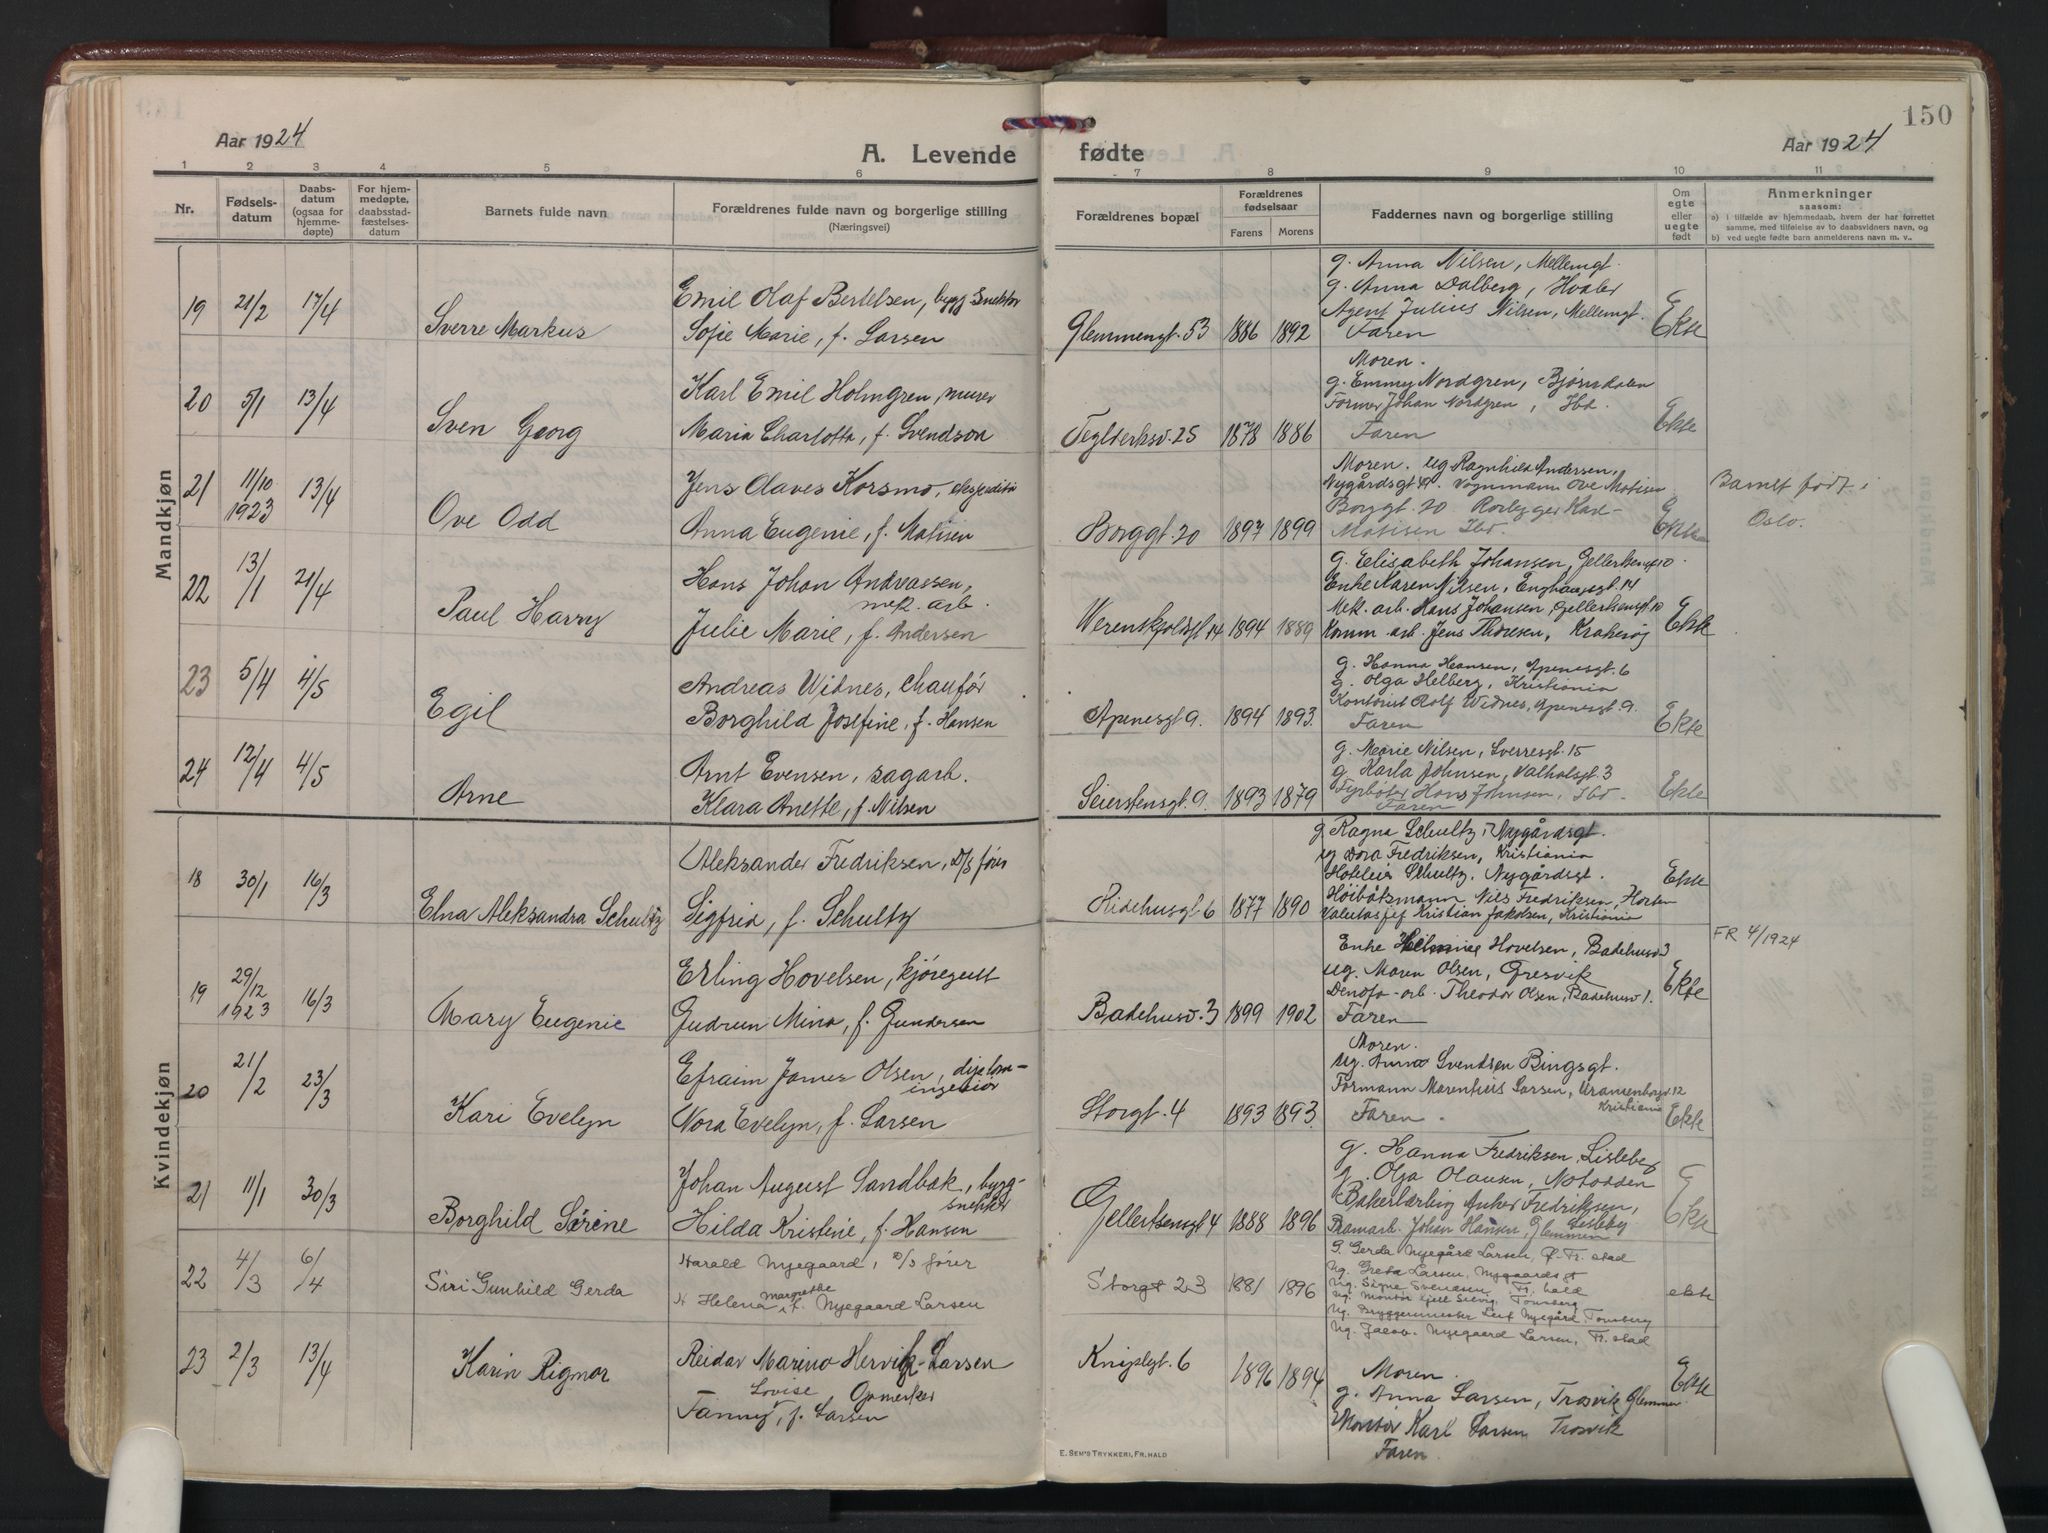 150
Aar 1924
A. Levende
fødte
Aar 1924
1 2 3 4 5 6 7 8 9 10 11
Nr.
Fødsels-
datum
Daabs-
datum
(ogsaa for
hjemme-
døpte)
For hjem-
medøpte,
daabsstad-
fæstelses-
datum
Barnets fulde navn
Forældrenes fulde navn og borgerlige stilling
(Næringsvei)
Forældrenes bopæl
Forældrenes
fødselsaar
Farens Morens
Faddernes navn og borgerlige stilling
Om
egte
eller
uegte
født
Anmerkninger
saasom:
a) i tilfælde av hjemmedaab, hvem der har forrettet
samme, med tilføielse av to daabsvidners navn, og
b) ved uegte fødte barn anmelderens navn m. v..
Mandkjøn
19 21/2 17/4
Sverre Markus
Emil Olaf Bertelsen, bygg.Snekker
Sofie Marie, f. Larsen
Glemmengt. 53 1886 1892
g. Anna Nilsen, Mellemgt.
g. Anna Dalberg, Hvaler
Agent Julius Nilsen, Mellemgt.
Faren
Ekte
20 5/1 13/4
Sven Georg
Karl Emil Holmgren, murer
Maria Charlotta, f. Svendson
Teglverksv. 25 1878 1886
Moren.
g. Emmy Nordgren, Bjørndalen
Former Johan Nordgren, Ibd.
Faren
Ekte
21 11/10
1923 13/4
Ove Odd
Jens Olaves Korsmo, ekspeditør
Anna Eugenie, f. Matisen
Borggt. 20 1897 1899
Moren. ug Ragnhild Andersen,
Nygårdsgt. Vognmann Ove Matisen
Borggt. 20 Rørlegger Karl
Matisen Ibd.
Ekte
Barnet født i
Oslo.
22 13/1 21/4
Paul Harry
Hans Johan Andreassen,
mek. arb.
Julie Marie, f. Andersen
Werenskjoldsgt 14 1894 1889
g. Elisabeth Johansen, Gellertsengt 10.
Enke Karen Nilsen, Enghaugsgt. 14
Mek. arb. Hans Johansen, Gellertsensgt. 10
Komm. arb. Jens Thoresen, Krakerøy
Ekte
23 5/4 4/5
Egil
Andreas Widnes, chauffør
Borghild Josefine, f. Hansen
Apenesgt 9. 1894 1893.
g. Hanna Hansen, Apenesgt. 6
g. Olga Helberg, Kristiania
Kontorist Rolf Widnes, Apenesgt. 9.
Faren
Ekte
24 12/4 4/5
Arne
Arnt Evensen, sagarb.
Klara Anette, f. Nilsen
Seierstensgt. 9. 1893 1879
g. Marie Nilsen, Sverresgt. 15
g. Karla Johnsen, Valhalsgt. 3
Fyrbøter Hans Johnsen, Ibd.
Faren
Ekte
Kvindekjøn
18 30/1 16/3
Elna Aleksandra Schultz
Aleksander Fredriksen, D/S fører
Sigfrid, f. Schultz
Ridehusgt. 6 1877 1890
g Ragna Schultz, Nygårdsgt.
ug Dora Fredriksen, Kristiania
Hoteleier Schultz. Nygårdsgt.
Høibåtsmann Nils Fredriksen, Horten
Valutasjef Kristian Jakolsen, Kristiania
Ekte
FR 4/1924
19 29/12
1923 16/3
Mary Eugenie
Erling Hovelsen, kjøregutt
Gudrun Mina, f. Gundersen
Badehusv. 3 1899 1902
Enke Hovelsen, Badehusv 3
ug. Maren Olsen, Gresvik
Denofa-arb. Theodor Olsen, Badehusv 1.
Faren
Ekte
20 21/2 23/3
Kari Evelyn
Efraim James Olsen, diplom-
ingeniør
Nora Evelyn, f. Larsen
Storgt. 4 1893 1893.
Moren.
ug. Anna Svendsen Bingsgt.
Formann Marentius Larsen, Uranienborgv. 12
Kristiania
Faren.
Ekte
21 11/1 30/3
Borghild Sørine
Johan August Sandbak, bygg-
snekker
Hilda Kristine, f. Hansen
Gellertsensgt 4 1888 1896
g. Hanna Fredriksen, Lisleby
g. Olga Olausen, Notodden
Bakerlærling Anker Fredriksen,
Lisleby
Bramarb. Johan Hansen, Glemmen
Ekte
22 4/3 6/4
Siri Gunhild Gerda
Harald Nyegaard, D/S fører
Helena Margrethe f. Nyegaard Larsen
Storgt 23 1881 1896
G. Gerda Nyegård Larsen, Ø. Fr. stad
Ug. Greta Larsen, Nygaardsgt
Ug. Signe Svendsen Fr. hald
Ug. Montør Kjell Selvig, Tønsberg
Ug. Bryggermester Leif Nyegård, Tønsberg
Ug. Jacob. Nyegaard Larsen, Fr. stad
ekte
23 2/3 13/4
Karin Rigmor
Reidar Marino Hervik-Larsen
Opmerker
Fanny Lovise, f. Larsen
Kniplgt. 6 1896 1894
Moren.
g. Anna Larsen, Trosvik, Glemmen
Montør Karl Larsen Trosvik
Faren.
Ekte
E. SEM'S TRYKKERI, FR. HALD